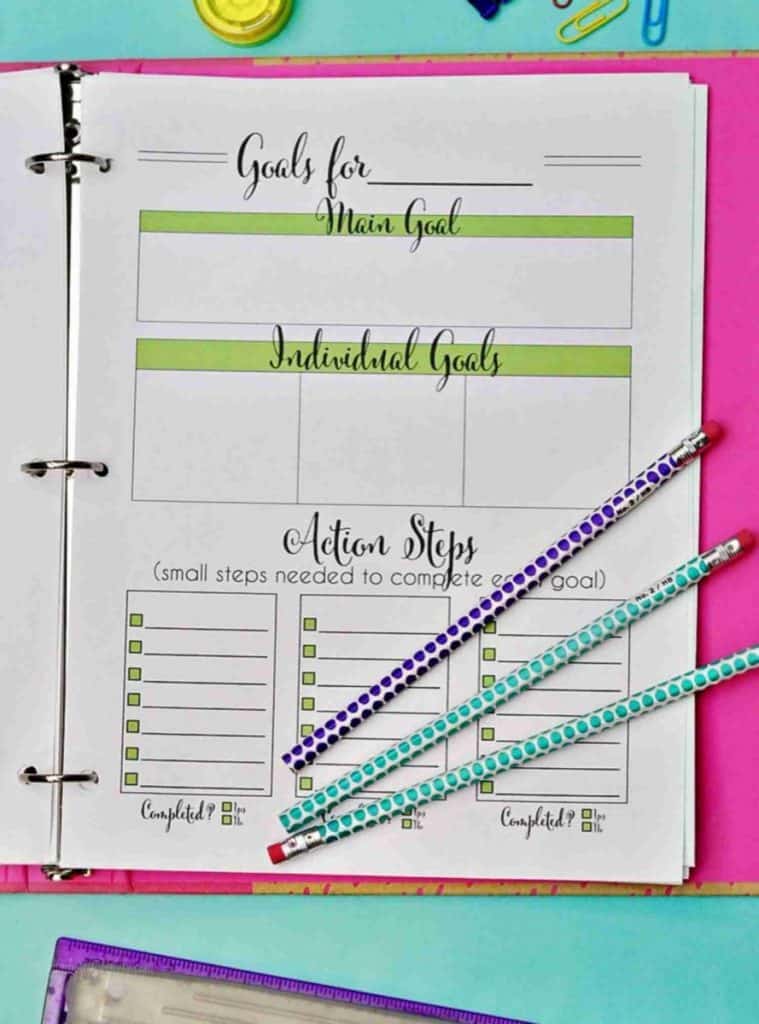 Goals for
Main Goal
Individual Goals
Action Steps
(small steps needed to complete goal)
No. 2 / HB
No. 2 / HB
Completed? Yes
No
Completed? Yes
No